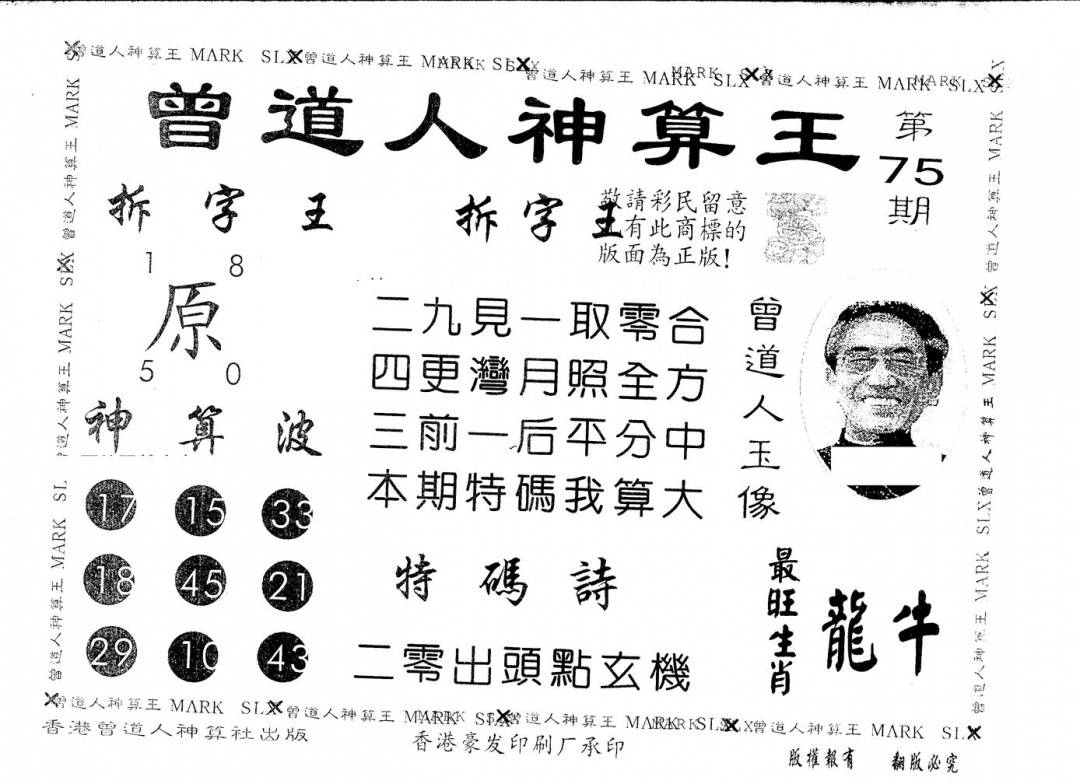 曾道人神算王 MARK SLX 曾道人神算王 MARK SLX 曾道人神算王 MARK SLX 曾道人神算王 MARK SLX
曾道人神算王
第
75
期
拆字王
拆字王
敬請彩民留意
有此商標的
版面為正版!
1 8
原
5 0
二九見一取零合
四更灣月照全方
三前一后平分中
本期特碼我算大
曾道人玉像
神算波
17 15 33
18 45 21
29 10 43
特碼詩
二零出頭點玄機
最旺生肖
龍牛
曾道人神算王 MARK SLX 曾道人神算王 MARK SLX 曾道人神算王 MARK SLX 曾道人神算王 MARK SLX
香港曾道人神算社出版
香港豪发印刷厂承印
版權報有 翻版必究